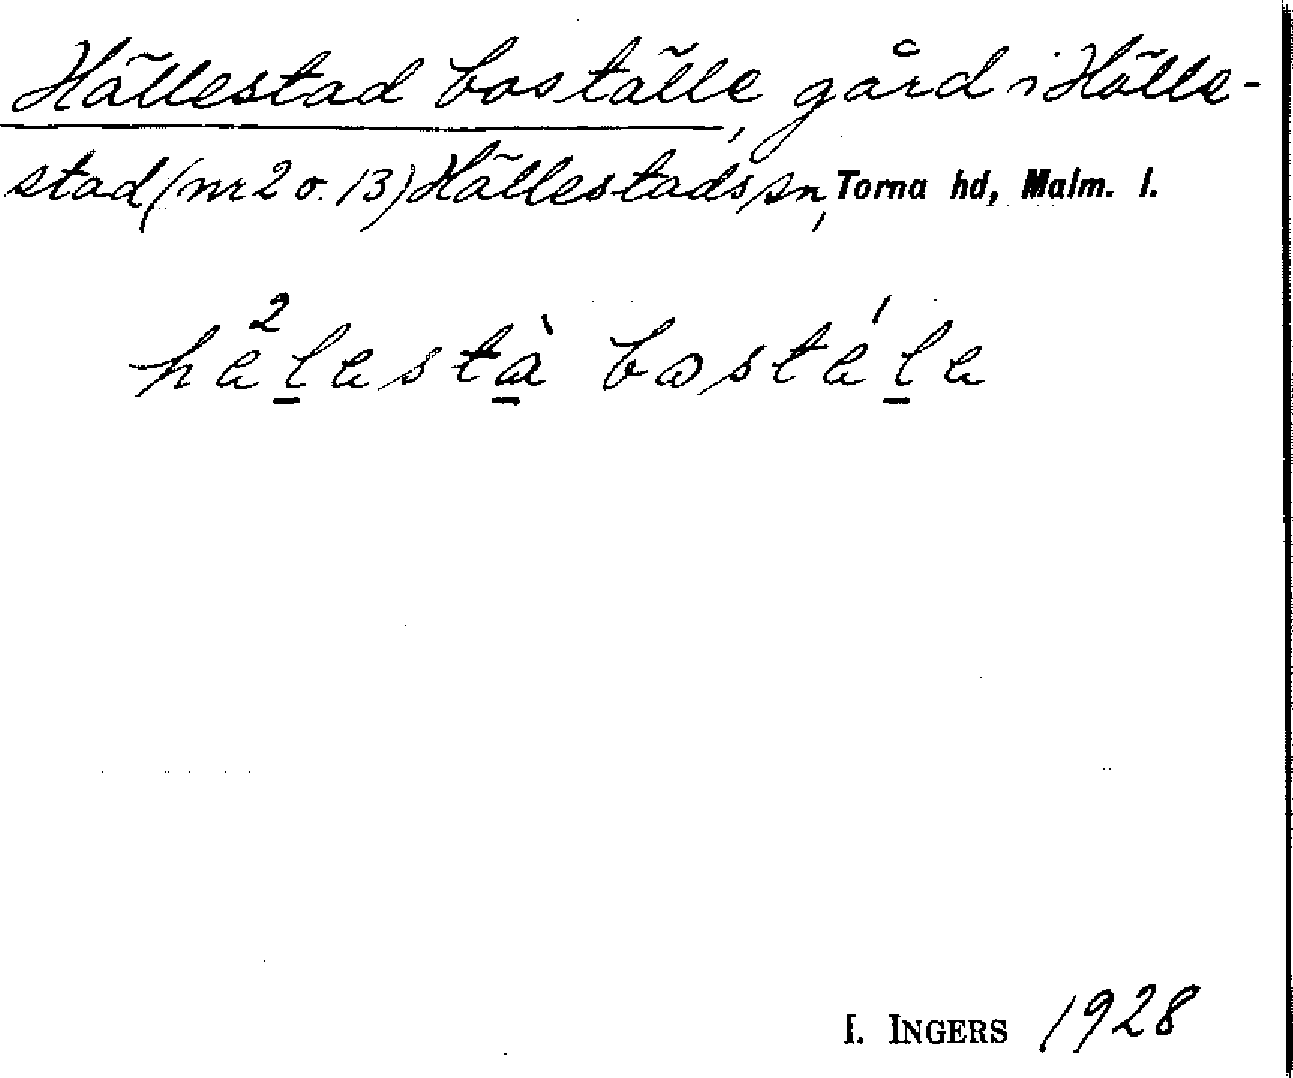 Hällestad boställe, gård i Hälle-
stad (nr 2 o. 13) Hällestads sn, Torna hd, Malm. l.
he²l̲està̲ bosté́l̲e
I. INGERS 1928